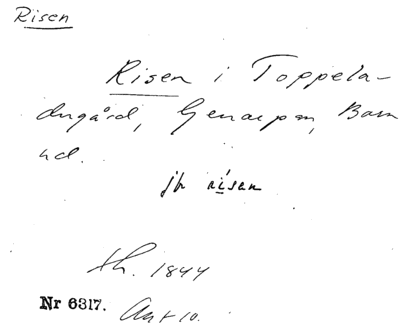 Risen
Risen i Toppela-
dugård, Genarps sn, Bara
hd.
jfr risen
sk. 1844
Nr 6317. Akt 10.